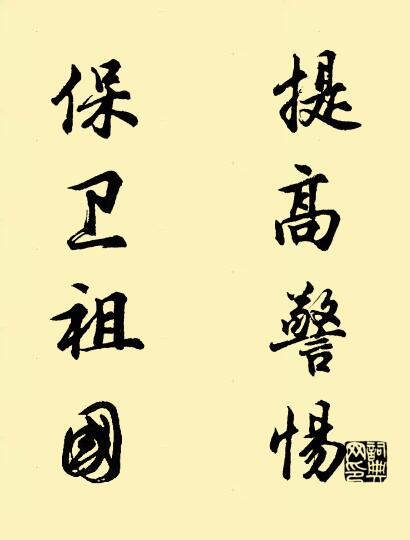 提高警惕
保卫祖國
詞典
网印